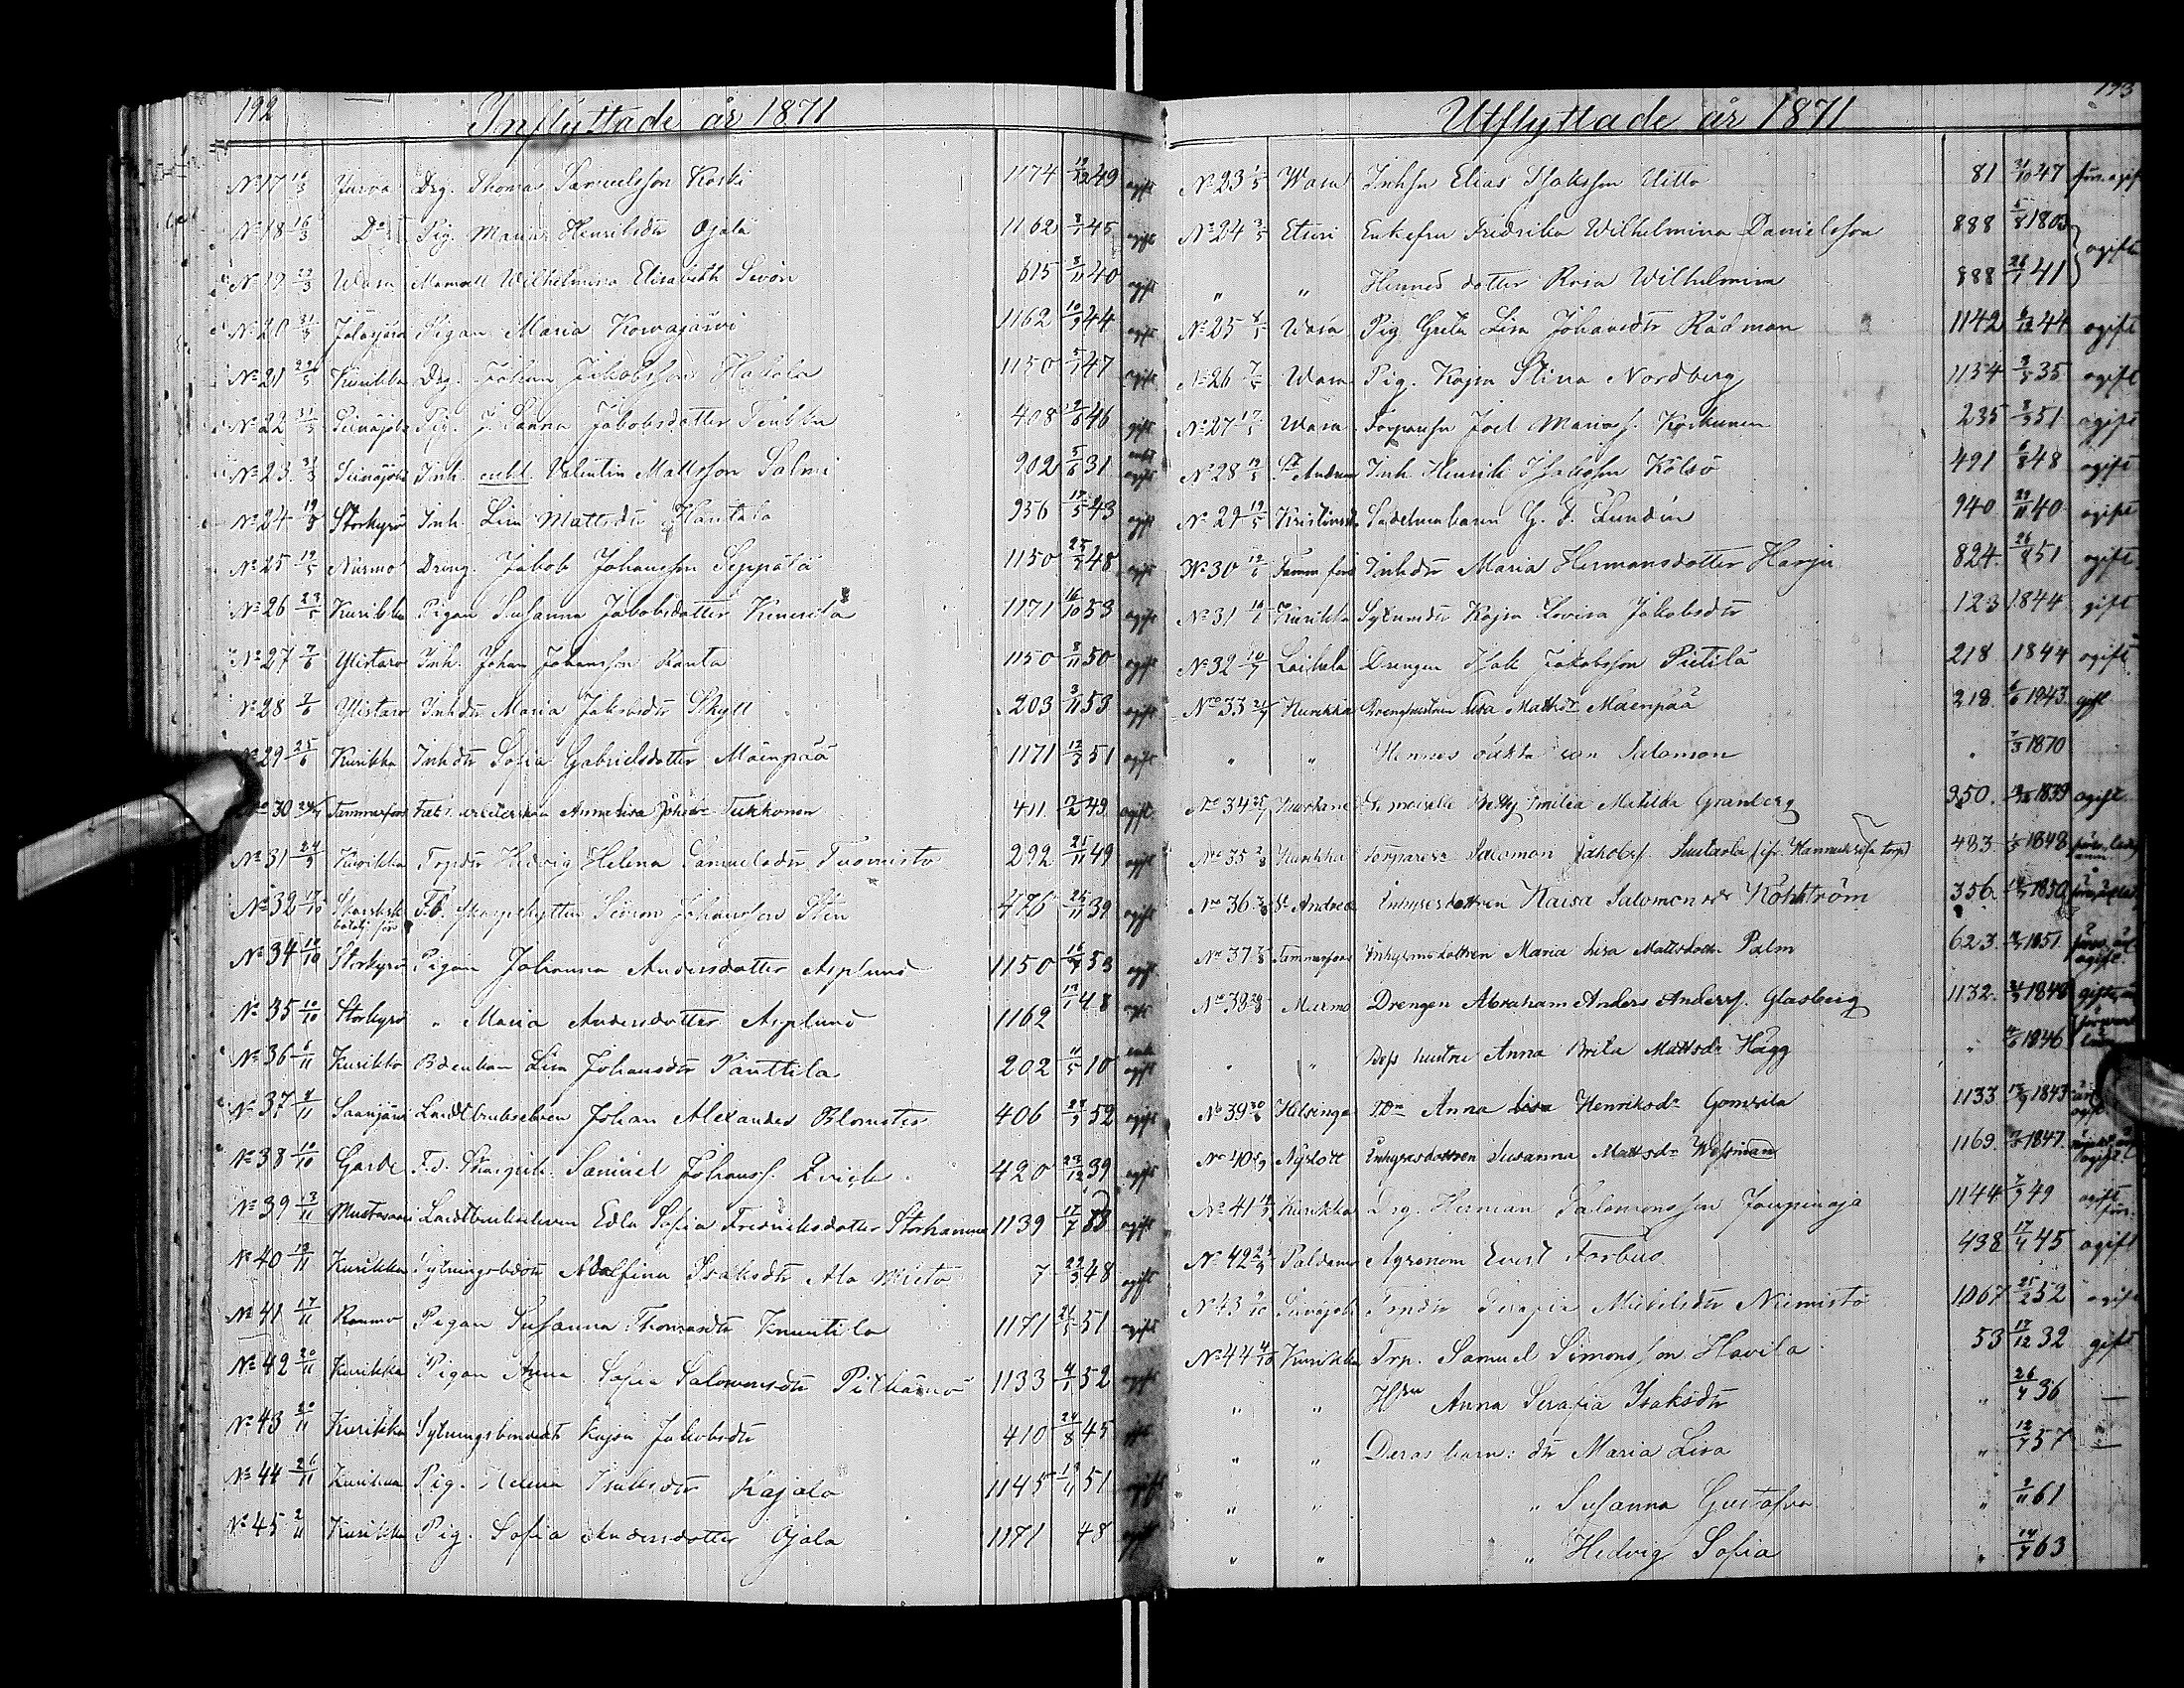 192
Inflyttade år 1871
No 17 16/3 Jurva Drg. Thomas Samuelsson Koski 1174 19/12 49 ogift
No 18 16/3 Do Pig. Maria Henriksdtr Ojala 1162 8/1 45 ogift
No 19 23/3 Wasa Mamsell Wilhelmina Elisabeth Sevón 615 8/11 40 ogift
No 20 31/3 Jalasjärvi Pigan Maria Korvajärvi 1162 10/9 44 ogift
No 21 22/5 Kurikka Drg. Johan Jakobsson Hakola 1150 5/7 47 ogift
No 22 31/3 Seinäjoki Pig. J. Sanna Jakobsdotter 408 2/6 46 gift
No 23 31/3 Seinäjoki Inh. enkl. Valentin Mattsson Salmi 902 5/6 31 enkl ogift
No 24 19/5 Storkyro Inh. Lisa Mattsdtr Hantala 936 17/5 43 ogift
No 25 19/5 Nurmo Dräng. Jakob Johansson Seppälä 1150 25/7 48 ogift
No 26 23/5 Kurikka Pigan Susanna Jakobsdotter 1171 16/10 53 ogift
No 27 7/6 Ylistaro Inh. Johan Johansson Ranta 1150 8/11 50 ogift
No 28 7/6 Ylistaro Inhdtr Maria Jakobsdtr Skytt 203 3/11 53 ogift
No 29 25/6 Kurikka Inhdtr Sofia Gabrielsdotter Mäenpää 1171 12/3 51 ogift
No 30 24/7 Tammerfors Fab. arbeterskan Annalisa Johsdr Tukkonen 411. 9/2 49. ogift
No 31 24/9 Kurikka Trpdtr Hedvig Helena Samuelsdtr Tuomisto 292 25/11 49 ogift
No 32 17/10 Skarpsk. batalj. Fd. skarpskytten Simon Johansson Sten 476 25/11 39 ogift
No 34 10/10 Storkyro Pigan Johanna Andersdotter Asplund 1150 16/7 53 ogift
No 35 10/10 Storkyro " Maria Andersdotter Asplund 1162 19/1 48
No 36 6/11 Kurikka Bdenkan Lisa Johansdtr Panttila 202 11/5 10 enka ogift
No 37 9/11 Saarijärvi Landtbrukseleven Johan Alexander Blomster 406 28/5 52 ogift
No 38 10/10 Garde Fd. Skarpsk. Samuel Johanss. Qvick 420 23/12 39 ogift
No 39 13/11 Mustasaari Landtbrukseleven Edla Sofia Fredriksdotter Storhamma 1139 17/7 53 ogift
No 40 13/11 Kurikka Sytningsbdtr Adolfina Isaksdtr Ala 7 22/3 48 ogift
No 41 17/11 Pigan Susanna Thomasdtr Knuutila 1171 21/5 51 ogift
No 42 20/11 Kurikka Pigan Anna Sofia Salomonsdtr 1133 4/1 52 ogift
No 43 20/11 Kurikka Sytningsbondedtr Kajsa Jakobsdtr 410 24/8 45
No 44 26/11 Kurikka Pig. Helena Isaksdtr Kajala 1145 19/11 51 ogift
No 45 2/11 Kurikka Pig. Sofia Andersdotter Ojala 1171 48 gift
193
Utflyttade år 1871
No 23 1/5 Wasa Inhsn Elias Isaksson Uitto 81 31/10 47 förr. ogift
No 24 3/5 Etseri Enkefru Fredrika Wilhelmina Danielsson 888 5/8 1803 ogift
" " Hennes dotter Rosa Wilhelmina 888 26/1 41
No 25 5/5 Wasa Pig Greta Lisa Johansdtr Rådman 1142 6/12 44 ogift
No 26 7/5 Wasa Pig. Kajsa Stina Nordberg 1134 3/5 35 ogift
No 27 17/5 Wasa Torparesn Joel Marias. Koskinen 235 8/3 51 ogift
No 28 19/5 St Andrea Inh. Henrik Isaksson Kölsö 491 6/8 48 ogift
No 29 19/5 Kristinest. Sadelmakaren G. F. Lundén 940 29/11 40 ogift
No 30 12/6 Tammerfors Inhdtr Maria Hermansdotter Harju 824 26/8 51 ogift
No 31 19/6 Kurikka Kajsa Lovisa Jakobsdtr 123 1844 gift
No 32 10/7 Laihela Drengen Isak Jakobsson Pietilä 218 1844 ogift
No 33 24/7 Kurikka Drenghustrun Lisa Mattsdr Mäenpää 218. 6/6 1843 gift
" " Hennes oäkta son Salomon " 7/3 1870
No 34 25/7 Demoiselle Betty Emilia Matilda Granberg 950. 19/12 1839 ogift
No 35 2/8 Kurikka Torparesn Salomon Jakobss. (ifr. Hannuksela torp) 483. 1/5 1848
No 36 3/8 St Andreæ Inhysesdottren Kaisa Salomonsdr Röhkström 356. 12/7 1850
No 37 7/8 Tammerfors Inhysesdottren Maria Lisa Mattsdottr Palm 623. 1851. ogift
No 38 29/8 Nurmo Drengen Abraham Anders Anderss. Glasberg 1132. 24/3 1846 gift
" " Dess hustru Anna Brita Mattsdr Hägg " 4/6 1846
No 39 30/8 Helsinge Pn Anna Lisa Henriksdr Gomsila 1133 13/9 1843 ogift
No 40 5/9 Nyslott Inhysesdottren Susanna Mattsdr Wessman 1169. 1847. ogift
No 41 12/9 Kurikka Drg. Herman Salomonsson Joupinoja 1144 7/9 49 ogift
No 42 23/9 Paldamo Agronom Evert Forbus 438 17/4 45 ogift
No 43 2/10 Seinäjoki Trpdtr Serafia Mickelsdtr Niemistö 1067 25/2 52 ogift
No 44 4/10 Kurikka Trp. Samuel Simonsson Havila 53 17/12 32 gift
" " Hstru Anna Serafia Isaksdtr " 26/7 36 —
" " Deras barn: dtr Maria Lisa " 12/7 57 —
" " " Susanna Gustafva " 2/11 61
" " " Hedvig Sofia " 14/7 63